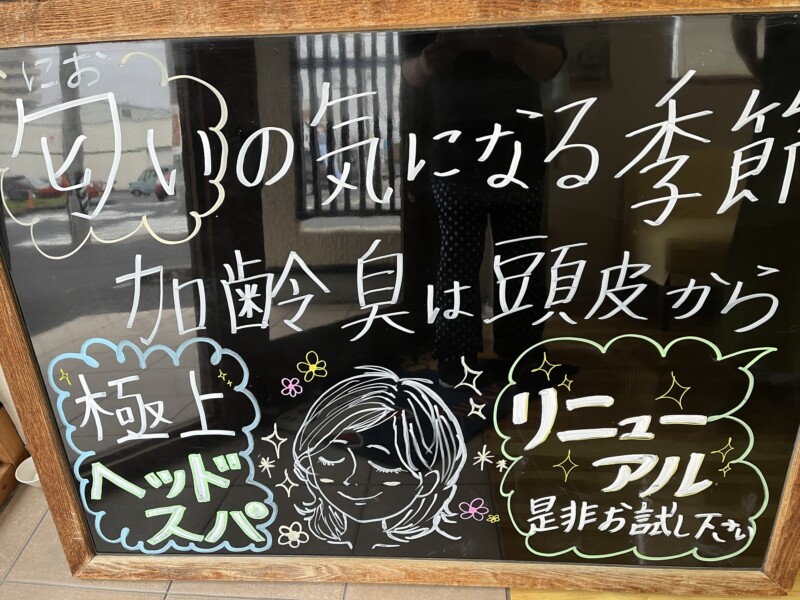 にお
匂いの気になる季節
加齢臭は頭皮から
極上
ヘッド
スパ
リニュー
アル
是非お試し下さい